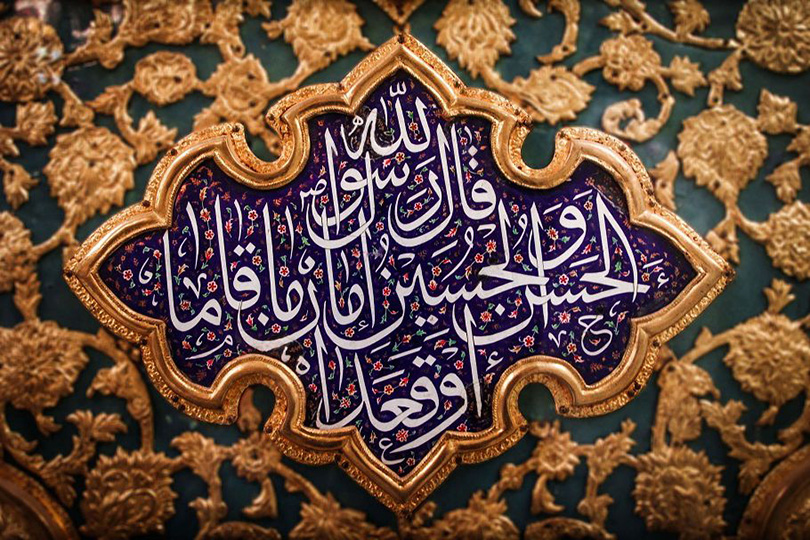 قال رسول الله ص
الحسن والحسين امامان قاما
او قعدا